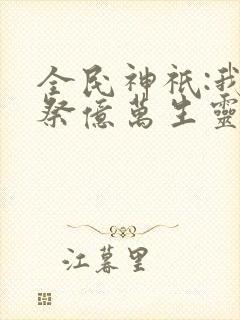 全民神祇:我
祭億萬生靈
江暮里